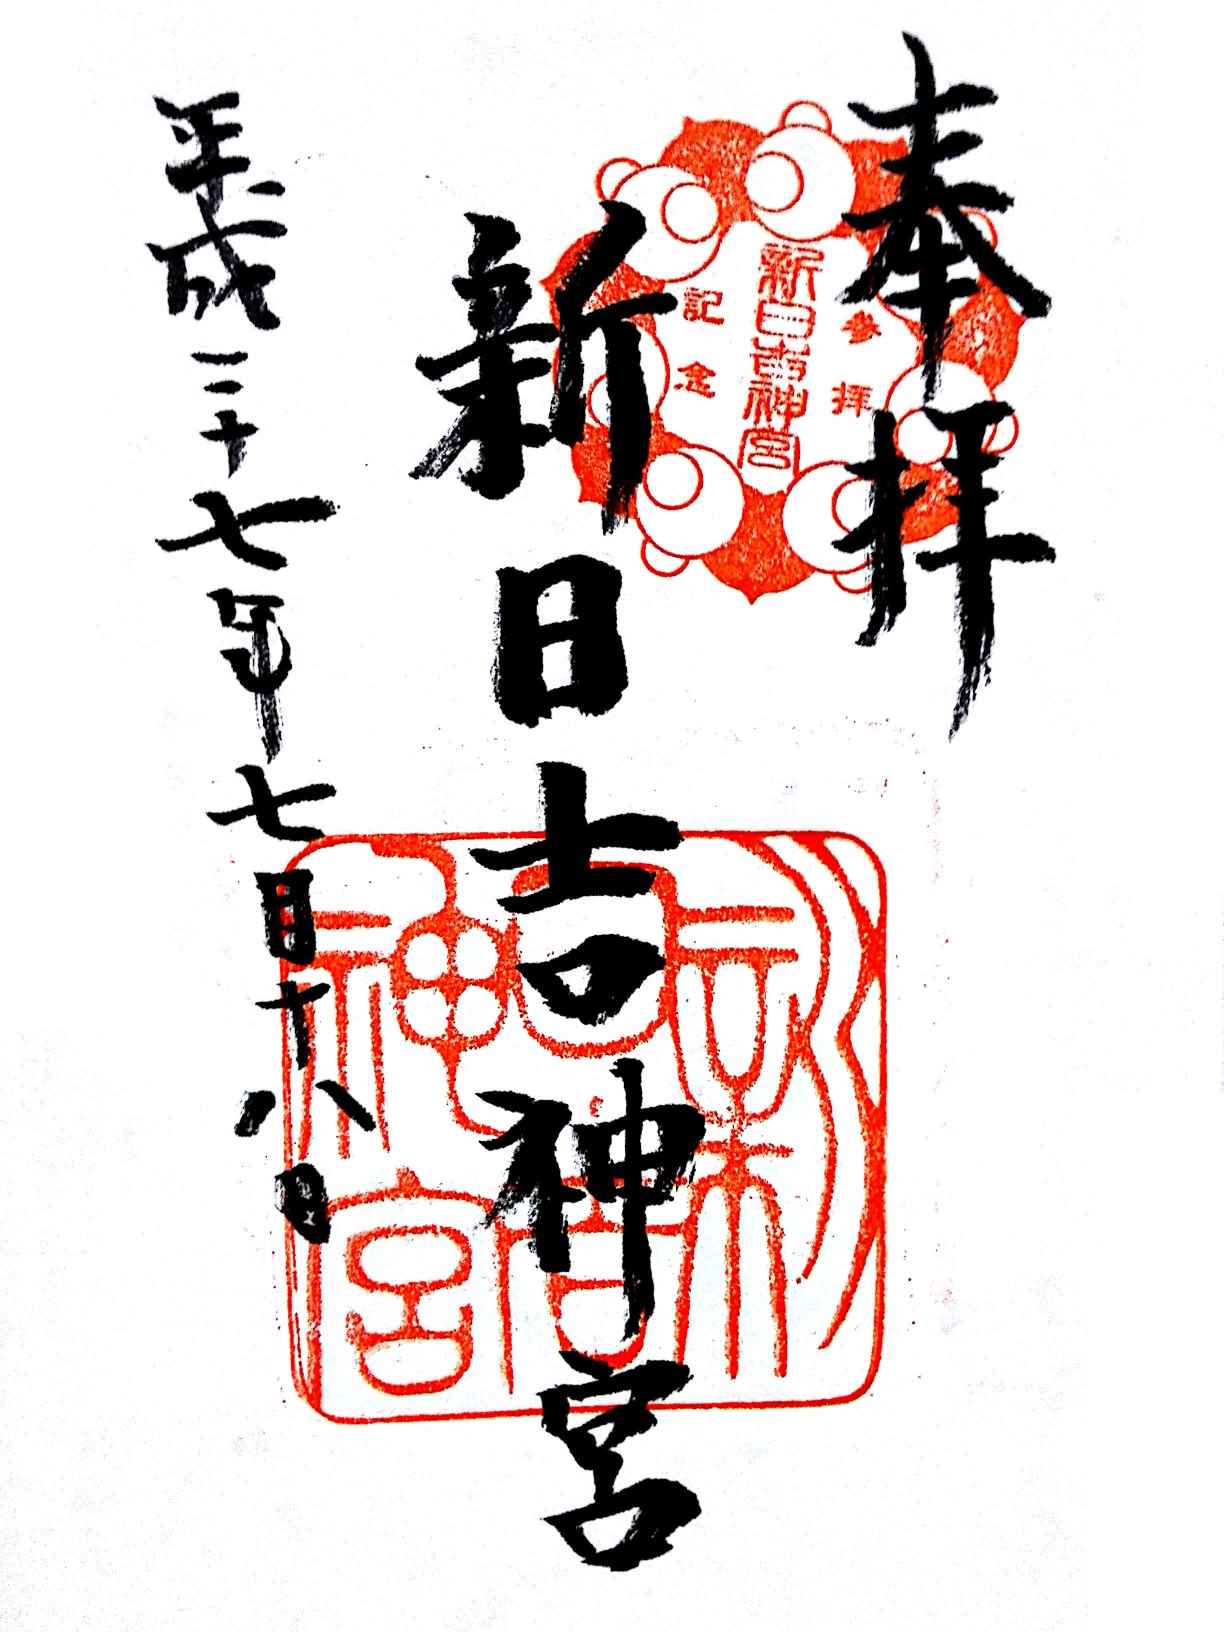 奉拝
参拝
新日吉神宮
記念
新日吉神宮
新日吉神宮
平成二十七年七月十八日